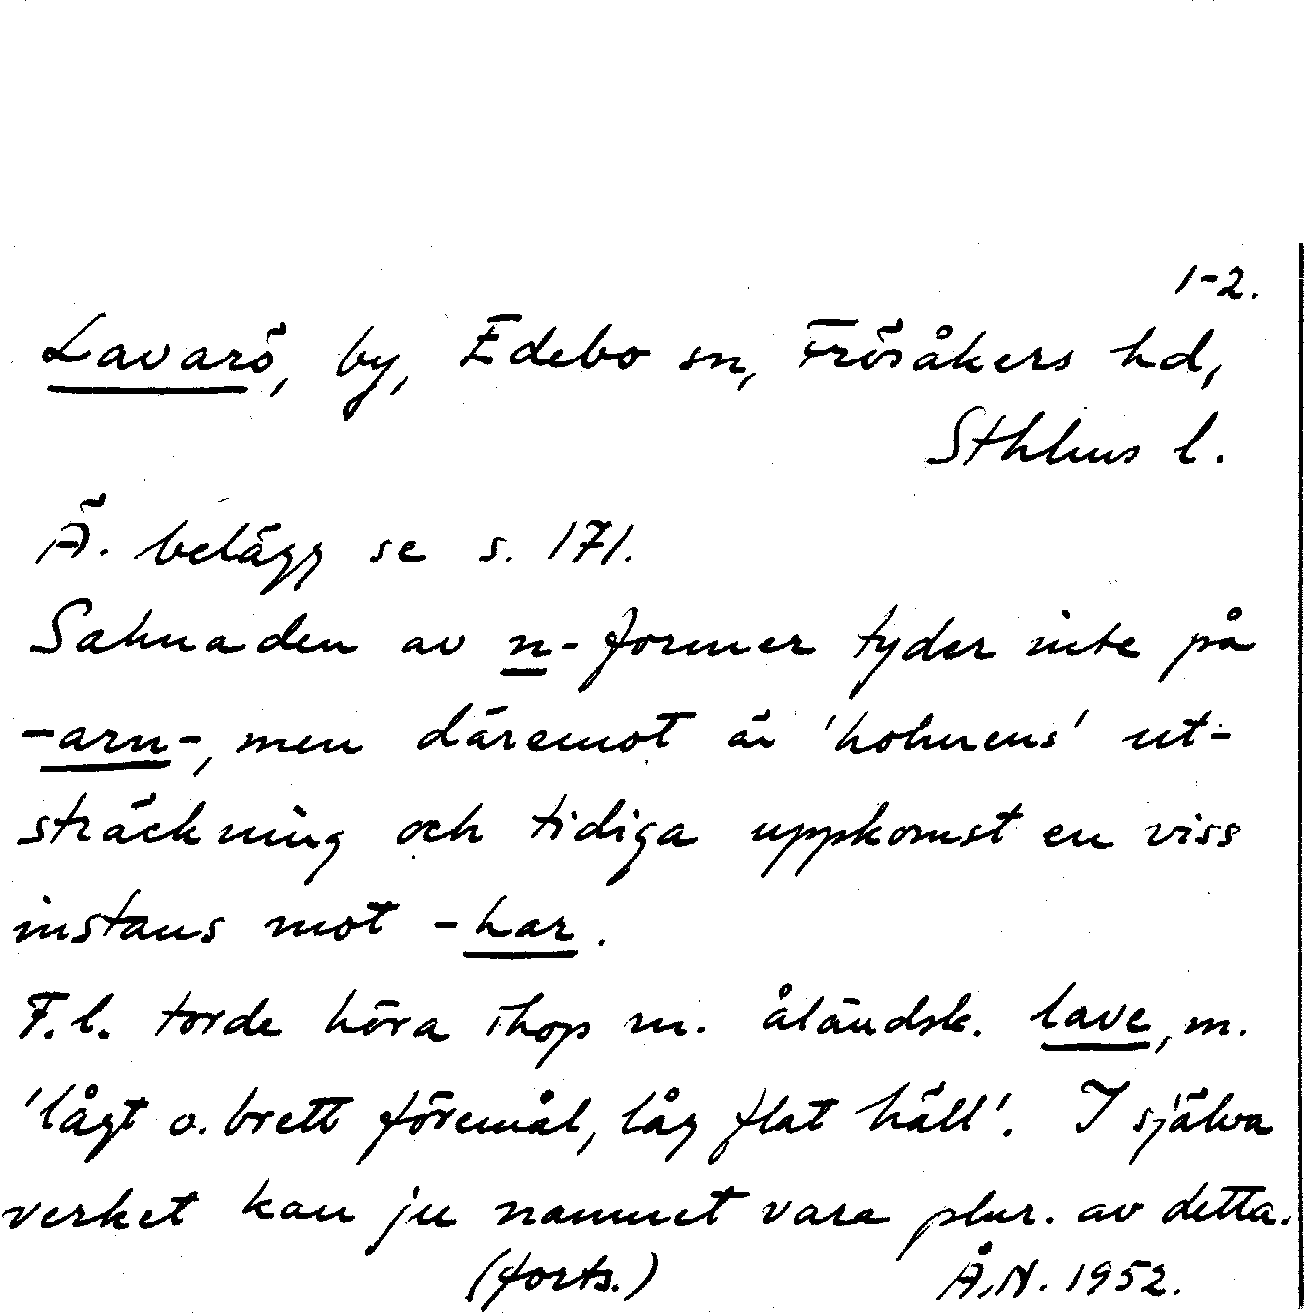 1-2.
Lavarö, by, Edebo sn, Frösåkers hd,
Sthlms l.
Ä. belägg se s. 171.
Saknaden av n-former tyder inte på
-arn-, men däremot är 'holmens' ut-
sträckning och tidiga uppkomst en viss
instans mot -har.
F.l. torde höra ihop m. åländsk. lave, m.
'lågt o. brett föremål, låg flat häll'. I själva
verket kan ju namnet vara plur. av detta.
(forts.) Å.N. 1952.